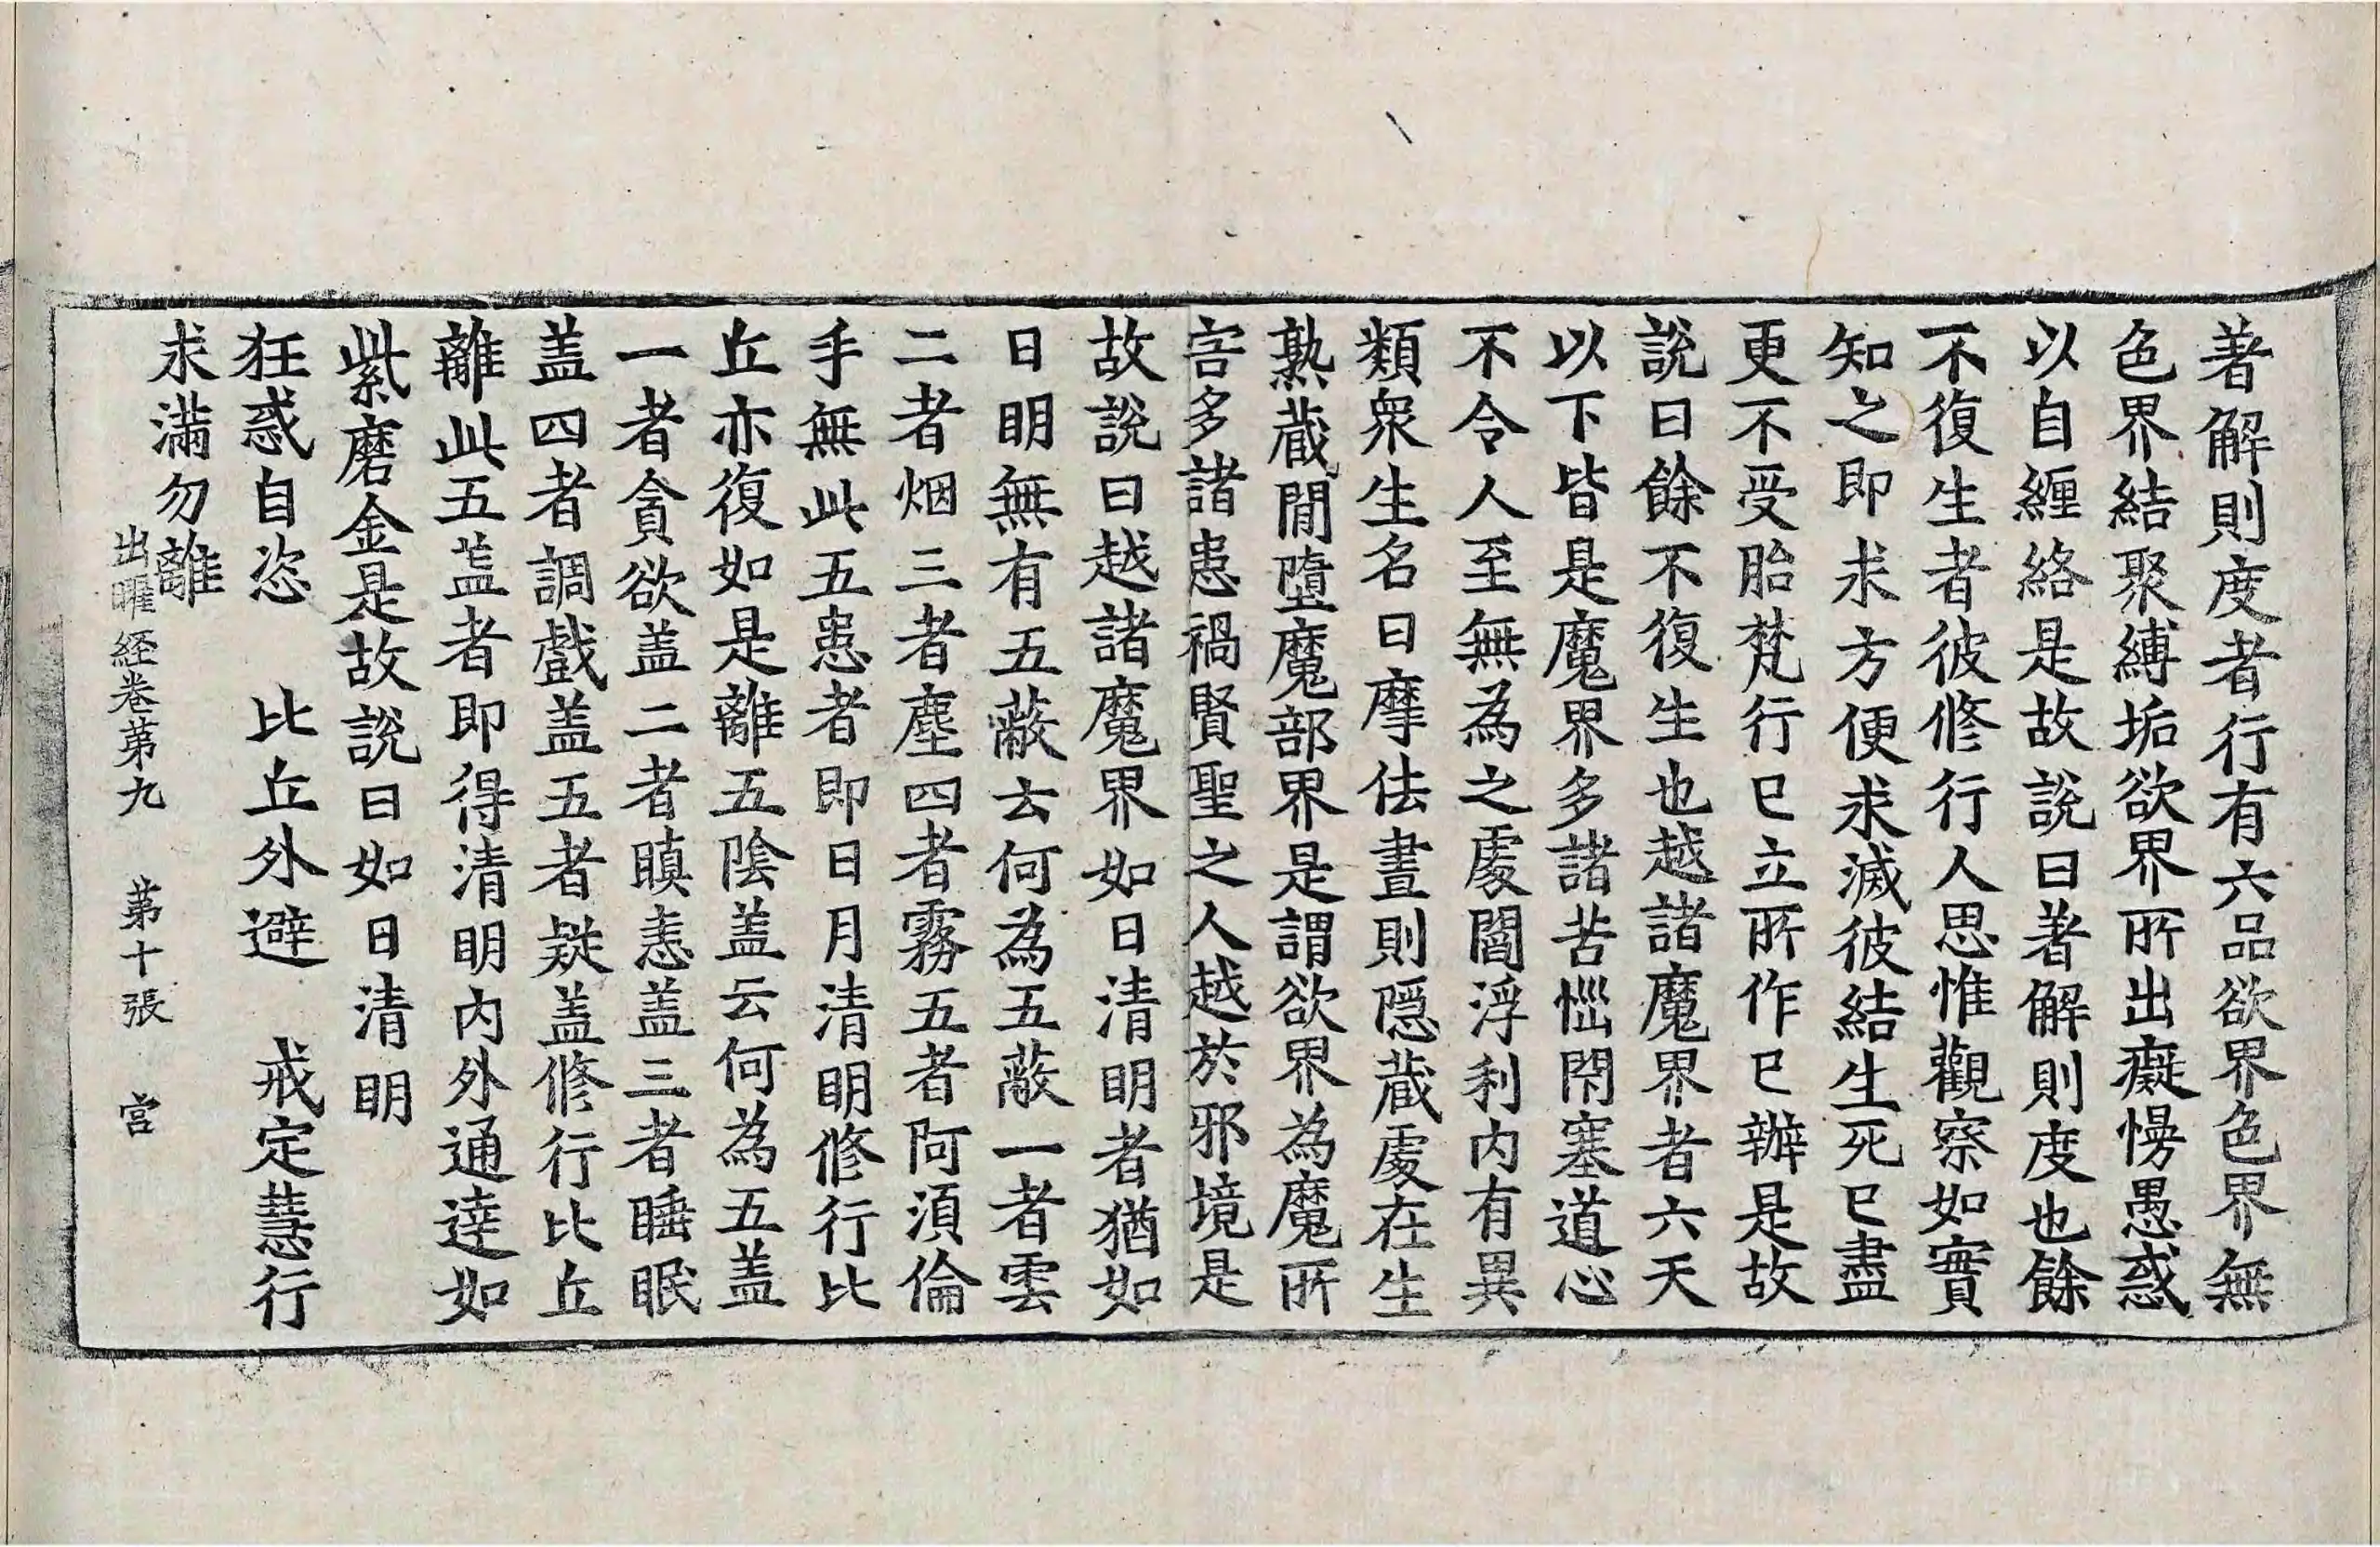 著解則度者行有六品欲界色界無
色界結聚縛垢欲界所出癡慢愚惑
以自纏絡是故說曰著解則度也餘
不復生者彼修行人思惟觀察如實
知之即求方便求滅彼結生死已盡
更不受胎梵行已立所作已辦是故
說曰餘不復生也越諸魔界者六天
以下皆是魔界多諸苦惱閇塞道心
不令人至無為之處閻浮利內有異
類衆生名曰摩佉晝則隱藏處在生
熟藏間墮魔部界是謂欲界為魔所
害多諸患禍賢聖之人越於邪境是
故說曰越諸魔界如日清明者猶如
日明無有五蔽云何為五蔽一者雲
二者烟三者塵四者霧五者阿須倫
手無此五患者即日月清明修行比
丘亦復如是離五陰盖云何為五盖
一者貪欲盖二者瞋恚盖三者睡眠
盖四者調戲盖五者疑盖修行比丘
離此五盖者即得清明內外通達如
紫磨金是故說曰如日清明
狂惑自恣　比丘外避　戒定慧行
求滿勿離
出曜經卷第九　第十張　宮